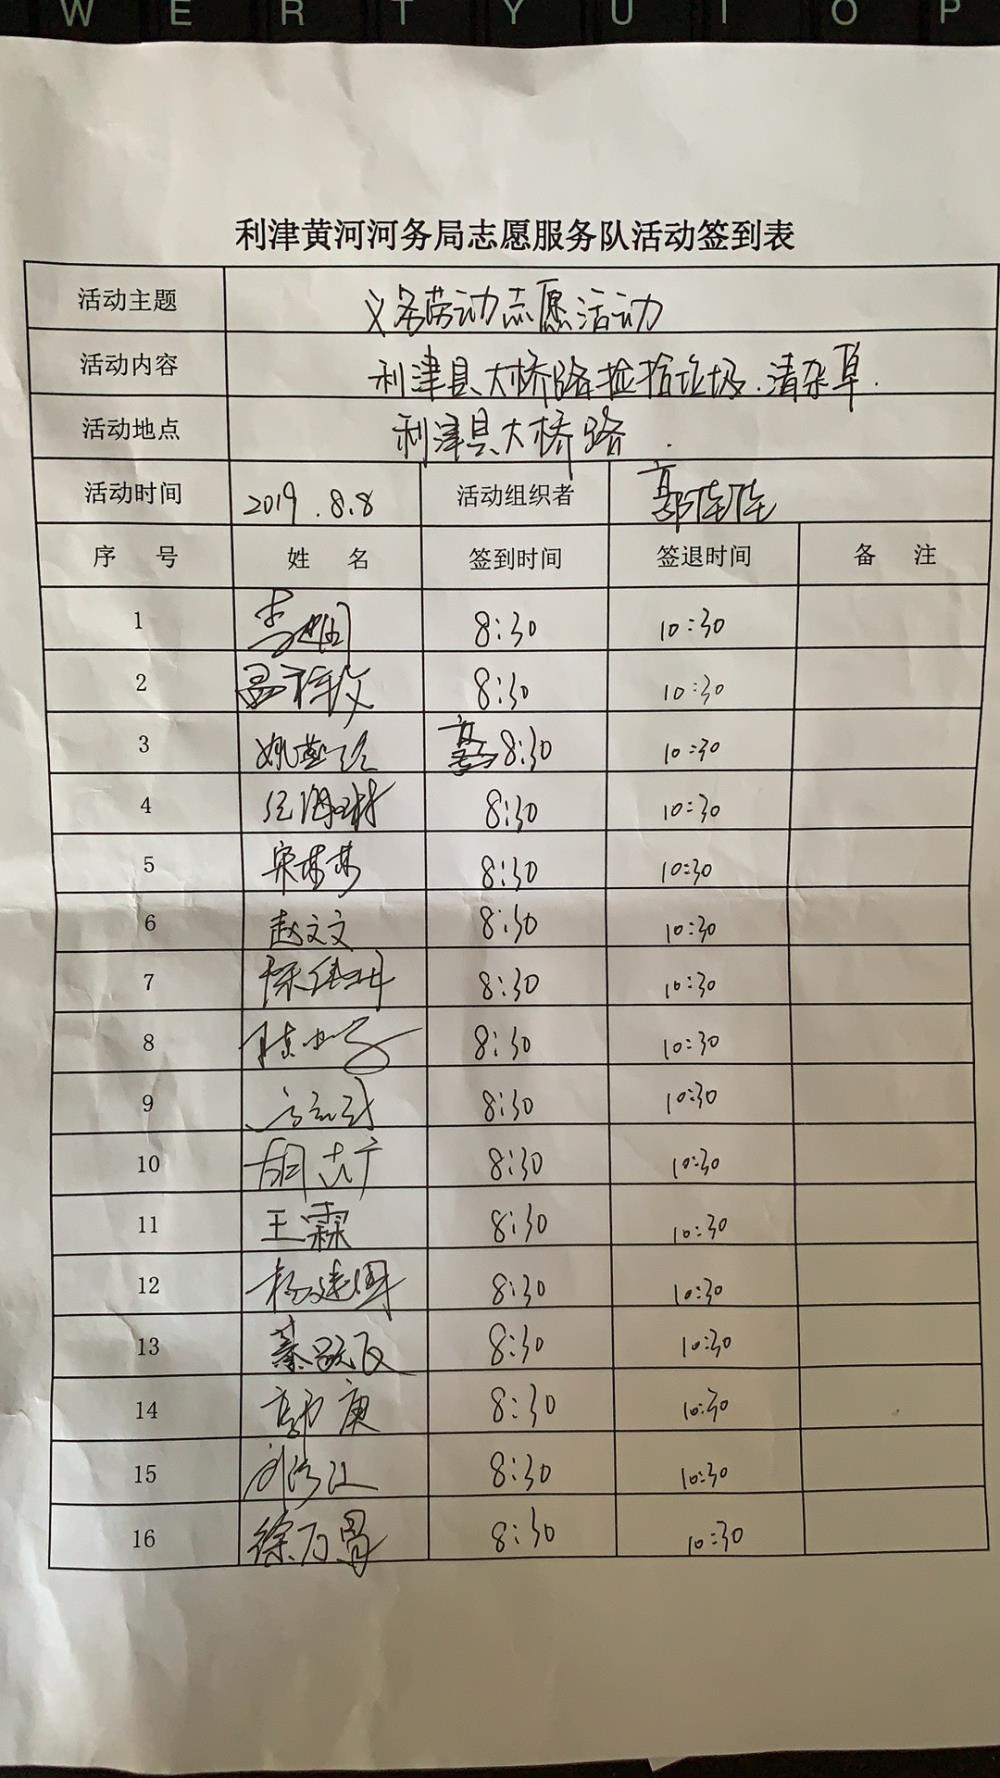 W E R T Y U I O P
利津黄河河务局志愿服务队活动签到表
活动主题 义务劳动志愿活动
活动内容 利津县大桥路捡拾垃圾.清杂草.
活动地点 利津县大桥路.
活动时间 2019.8.8 活动组织者 郭佳佳
序号 姓名 签到时间 签退时间 备注
1 8:30 10:30
2 8:30 10:30
3 8:30 10:30
4 8:30 10:30
5 宋林林 8:30 10:30
6 赵文文 8:30 10:30
7 8:30 10:30
8 8:30 10:30
9 8:30 10:30
10 8:30 10:30
11 王霖 8:30 10:30
12 杨建国 8:30 10:30
13 綦跃飞 8:30 10:30
14 8:30 10:30
15 8:30 10:30
16 8:30 10:30